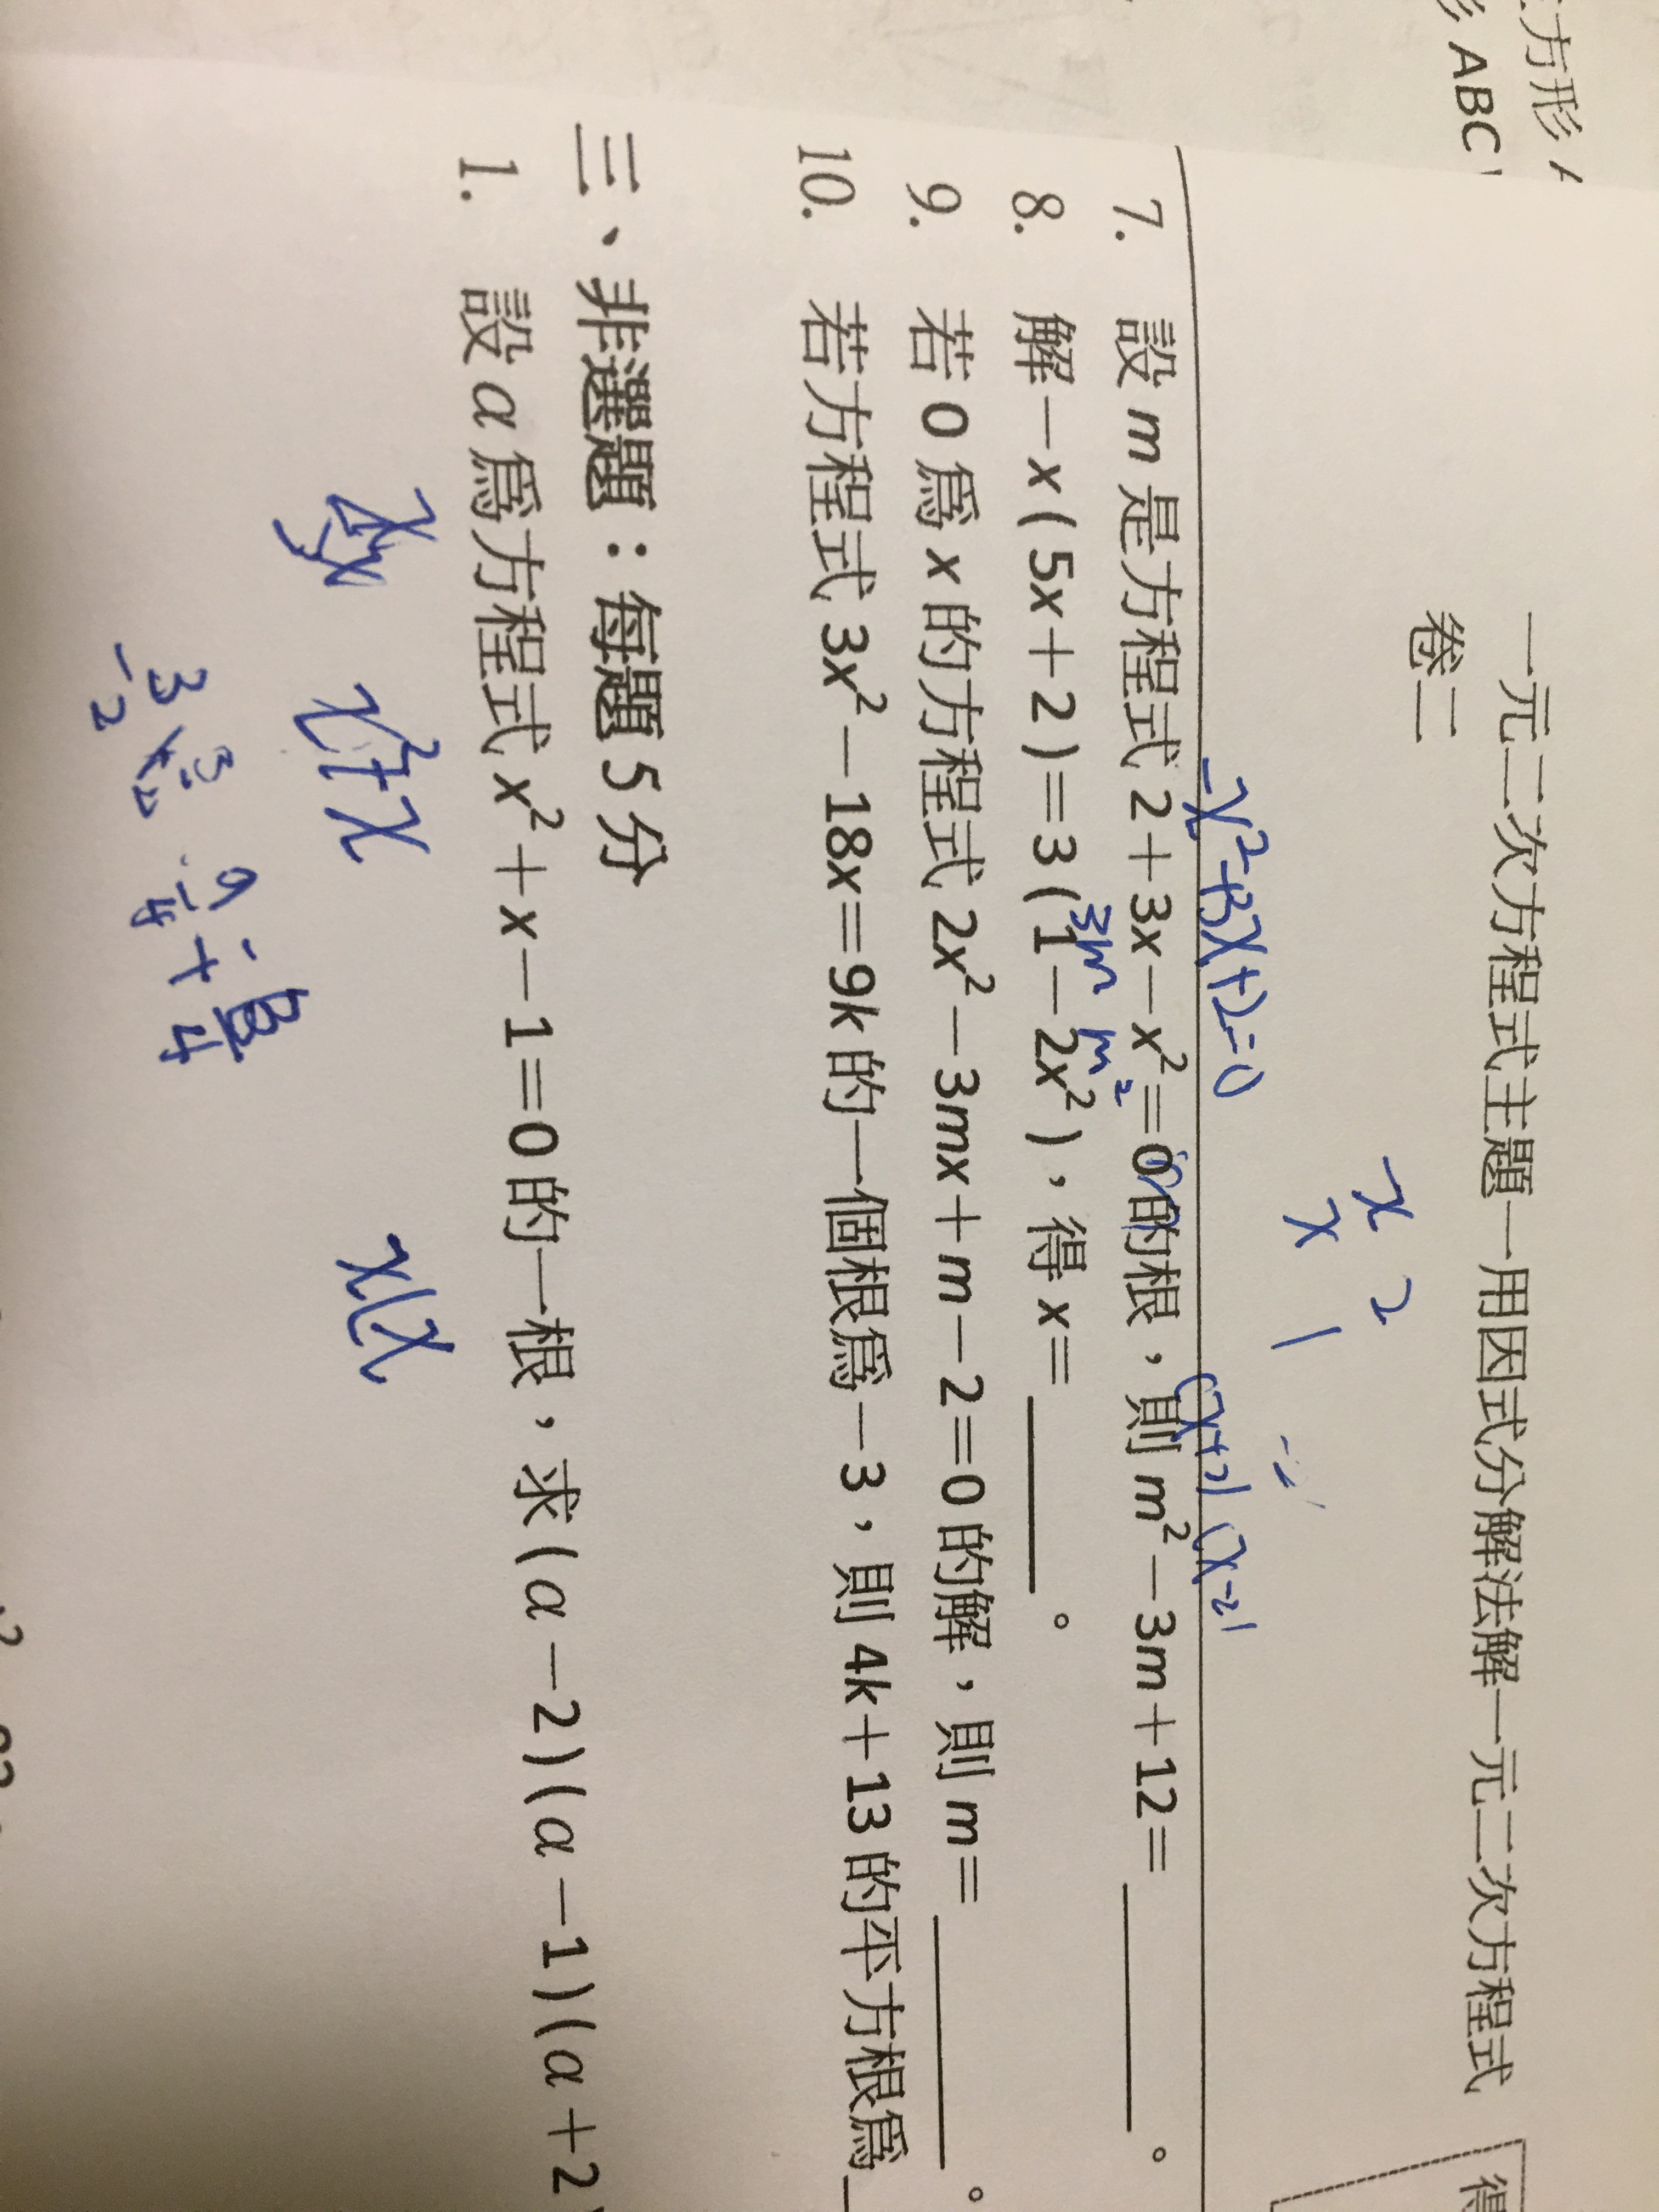 方形
形 ABC
一元二次方程式主題一用因式分解法解一元二次方程式
卷二
得
x 2
x 1
-x²+3x+2=0
(x+2) (x-2)
7. 設 m 是方程式 2+3x-x²=0 的根，則 m²-3m+12=______。
3m m²
8. 解-x(5x+2)=3(1-2x²)，得 x=______。
9. 若 0 為 x 的方程式 2x²-3mx+m-2=0 的解，則 m=______。
10. 若方程式 3x²-18x=9k 的一個根為-3，則 4k+13 的平方根為
三、非選題：每題 5 分
1. 設 α 為方程式 x²+x-1=0 的一根，求(α-2)(α-1)(α+2
x²+x x(x